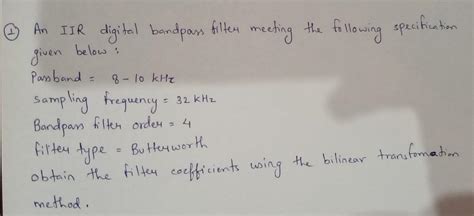 ① An IIR digital bandpass filter meeting the following specification
given below :
Passband = 8-10 kHz
sampling frequency = 32 kHz
Bandpass filter order = 4
filter type = Butterworth
obtain the filter coefficients using the bilinear transformation
method.